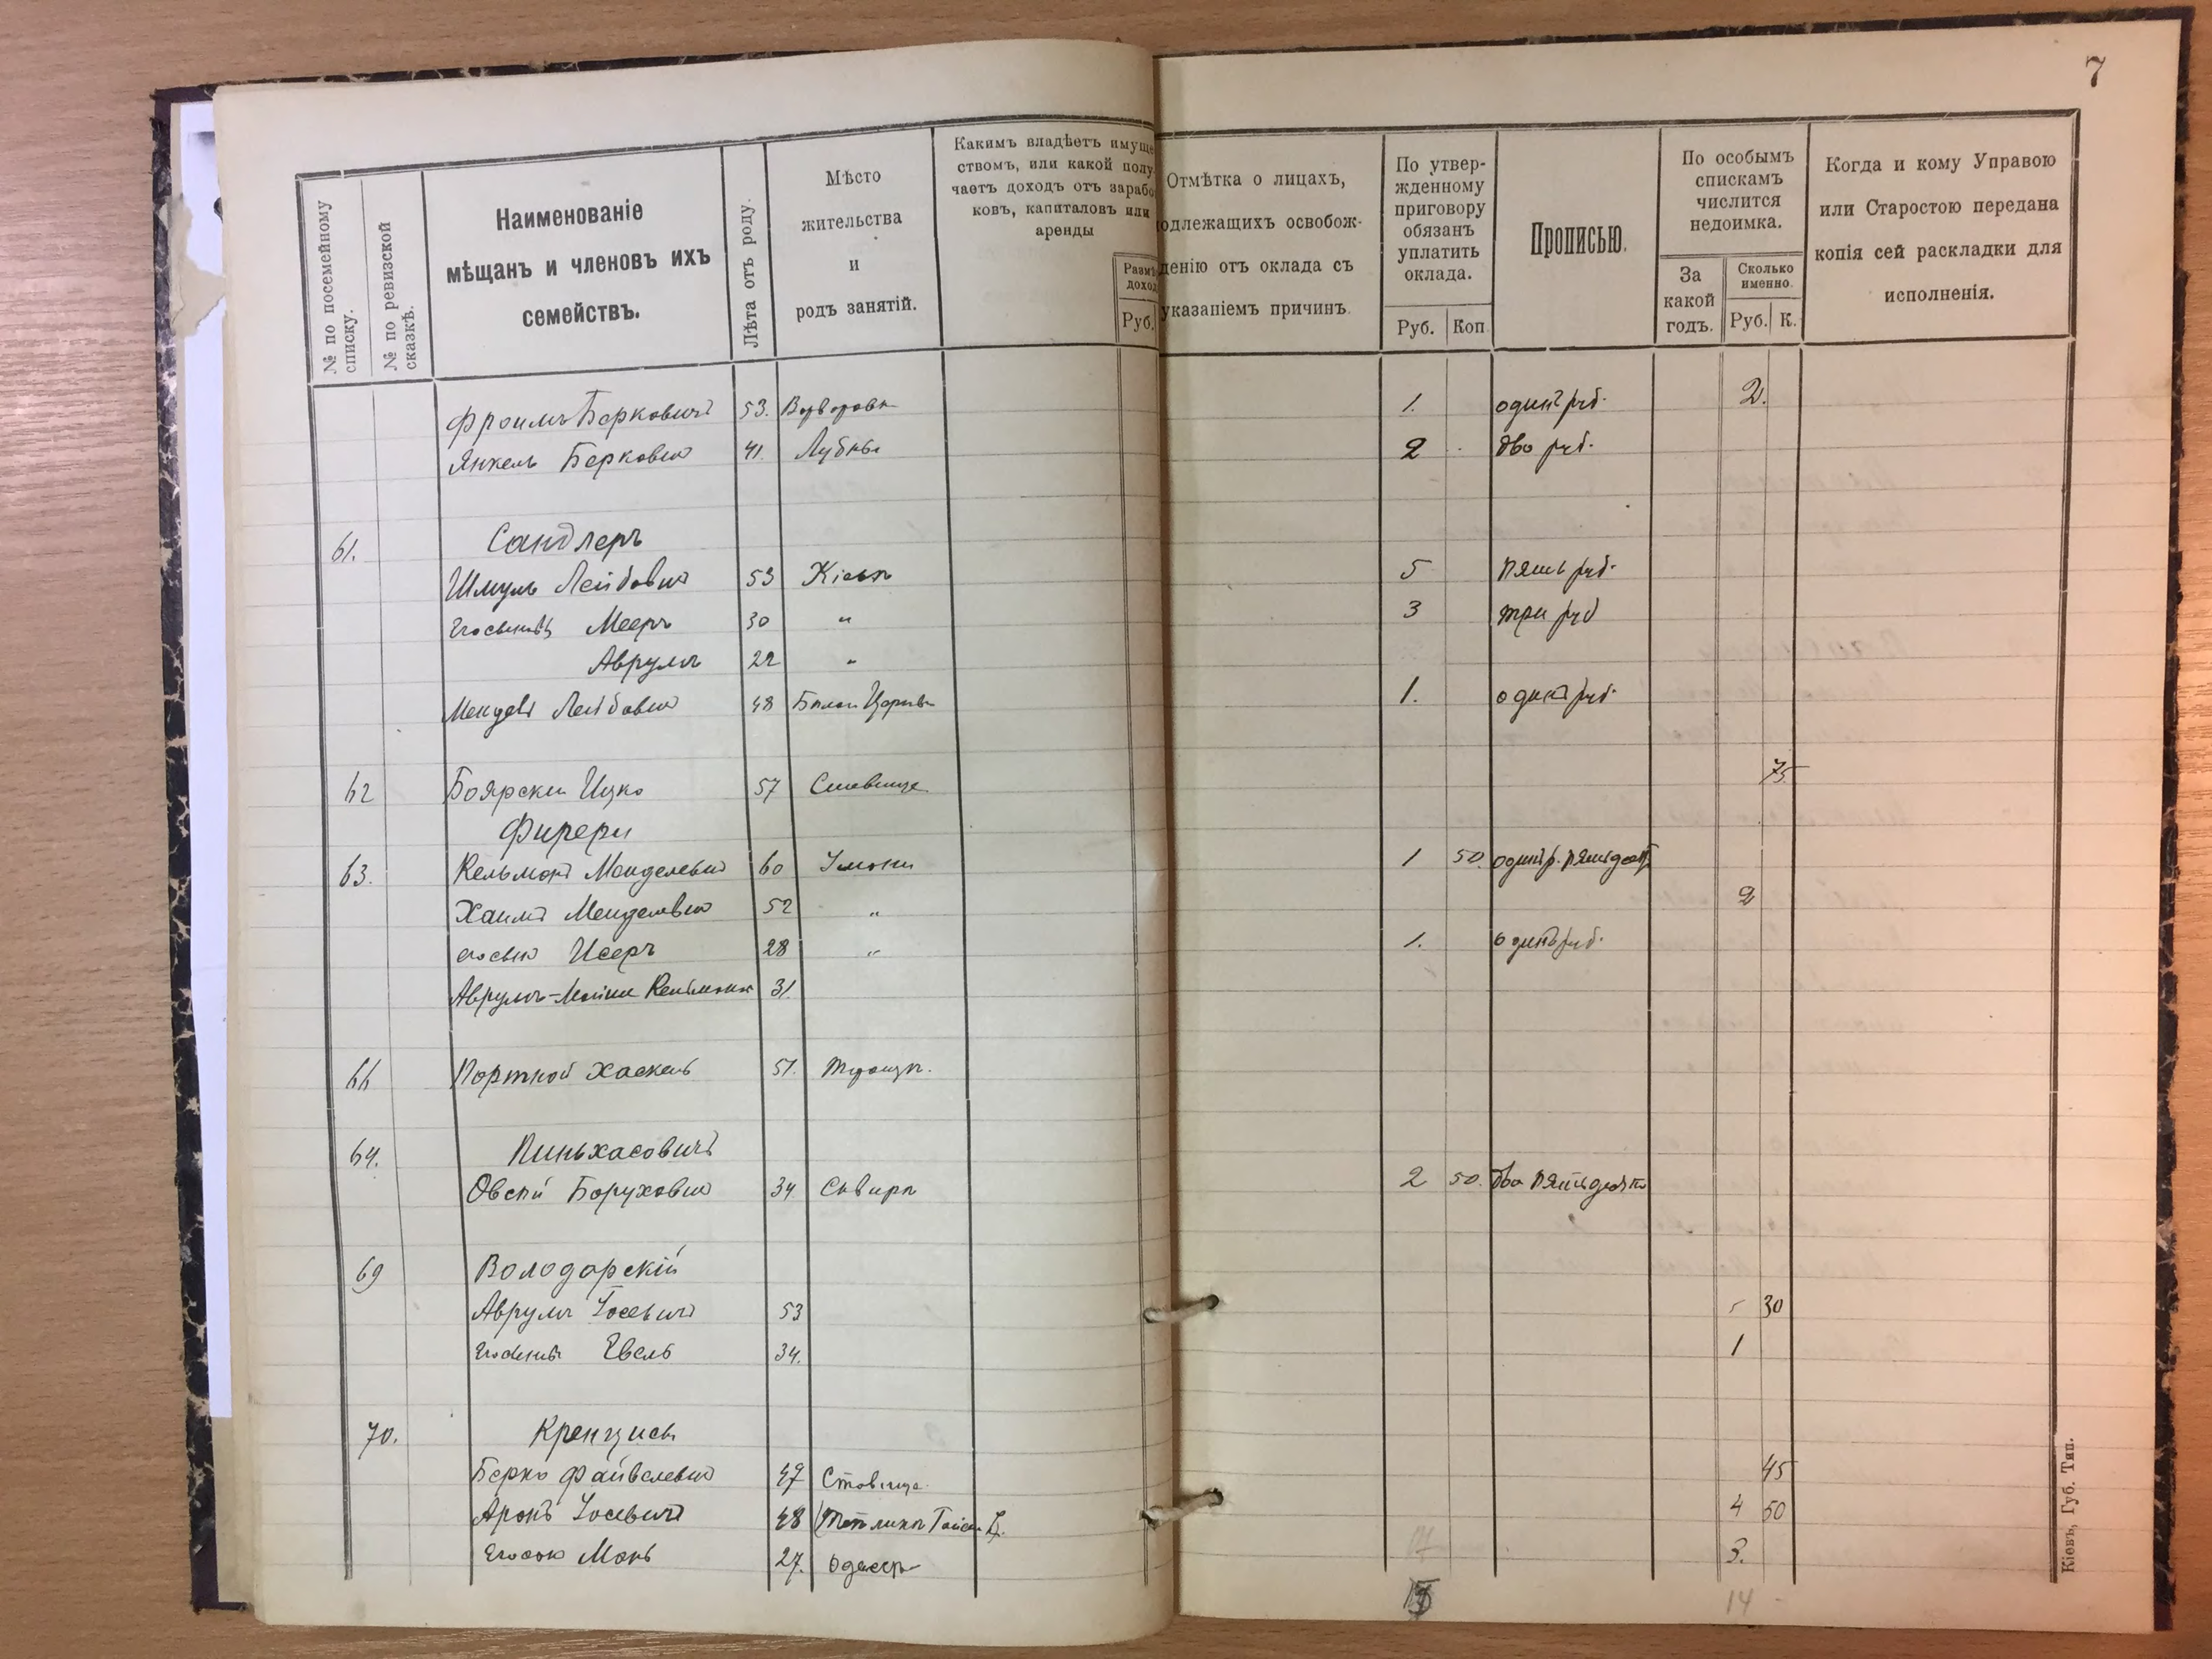 7
№ по посемейному списку.
№ по ревизской сказкѣ.
Наименованіе
мѣщанъ и членовъ ихъ
семействъ.
Лѣта отъ роду.
Мѣсто
жительства
и
родъ занятій.
Какимъ владѣетъ имуще
ствомъ, или какой полу
чаетъ доходъ отъ зарабо
ковъ, капиталовъ или
аренды
Разм
доход
Руб.
Отмѣтка о лицахъ,
одлежащихъ освобож-
денію отъ оклада съ
указаніемъ причинъ.
По утвер-
жденному
приговору
обязанъ
уплатить
оклада.
Руб. Коп.
Прописью.
По особымъ
спискамъ
числится
недоимка.
За
какой
годъ.
Сколько
именно.
Руб. К.
Когда и кому Управою
или Старостою передана
копія сей раскладки для
исполненія.
Фроимъ Берковичъ 53. 1. одинъ руб. 2.
Янкель Берковичъ 41. Лубны 2 два руб.
61. Сандлеръ
Шмуль Лейбовичъ 53 Кіевъ 5 пять руб.
Его сынъ Мееръ 30 " 3 три руб
Аврумъ 22 "
Лейбовичъ 48 Белая Церковь 1. одинъ руб.
62 Боярски Ицко 57 75
Фирери
63. Кельманъ Менделевичъ 60 Умань 1 50. один р. пятьдесят
Хаимъ Менделевичъ 52 " 2
его сынъ Исеръ 28 " 1. одинъ руб.
Аврумъ- 31.
66 Портной Хаскель 51.
64. Пиньхасовичъ
Овсей Боруховичъ 34 Сквира 2 50. два пятьдесят
69 Володарскій
Аврумъ Іосевичъ 53 5 30
34. 1
70.
Берко Файвелевичъ 47 Ставище 45
Аронъ Іосевичъ 48 4 50
27. Одесса 3.
14
Кіевъ, Губ. Тип.